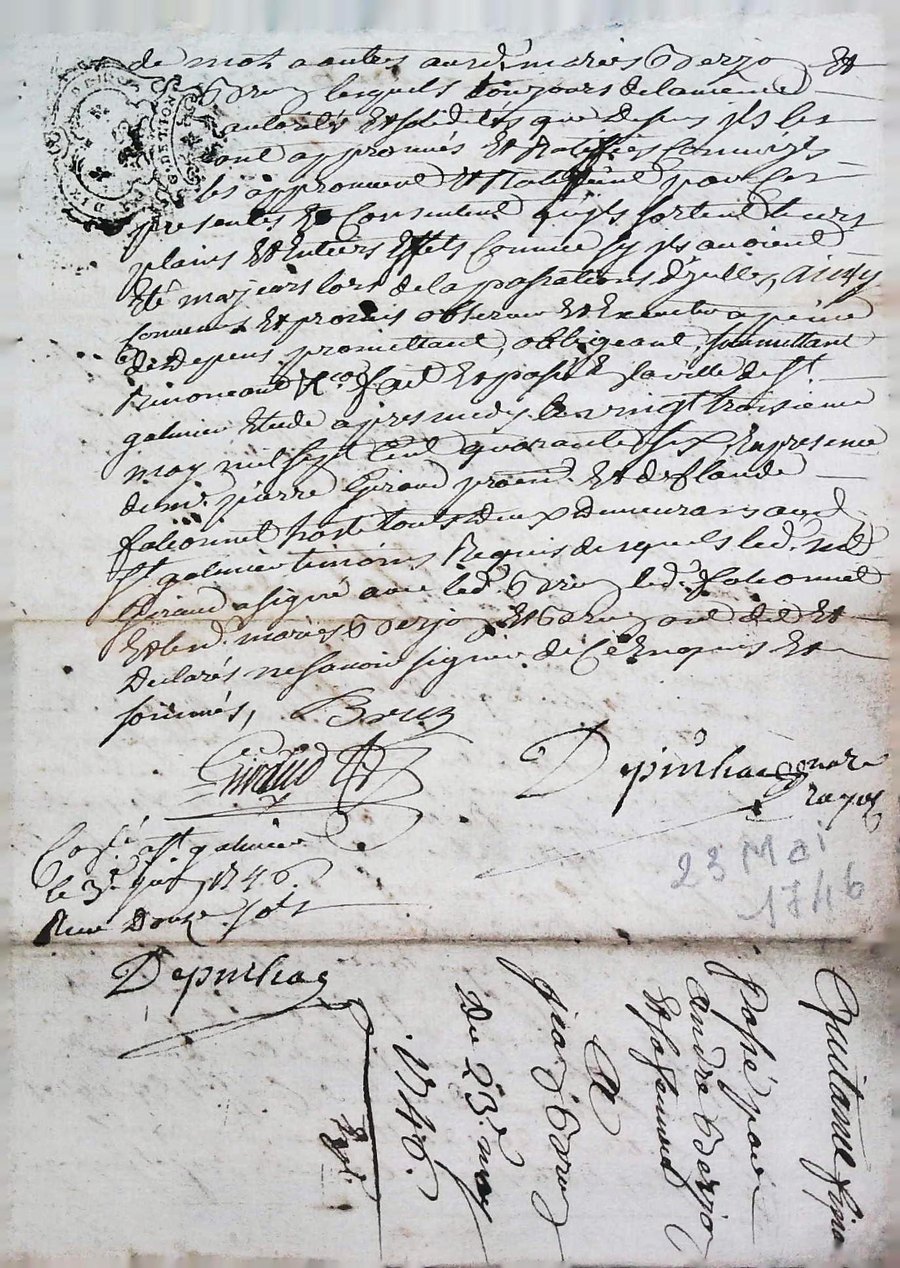 de mot a autres aud. mariés Verjo et
lesquels toujours de la meme
autorité et que Depuis ils les
ont approuvés et Ratiffies
les approuvent et Ratiffient par ces
presentes et Consentent qu'ils sortent leurs
plains et Entiers Effets Comme sy ils avoient
Eté majeurs lors de la passations d'yelles, ainsy
Convenu et promis observer et Executer a peine
de Depens, promettant, obligeant, soumettant
Renonceant &co fait et passé la ville de St.
galmier Etude apres midy le vingt troisieme
may mil sept Cent quarante six, En presence
de mr. pierre Giraud et de flaude
falconnet hoste tous Deux Demeurans aud.
St. galmier temoins Requis desquels led. mr
Giraud a signé avec led. led. falconnet
Et lesd. mariés Verjo et ont dit et
Declarés ne savoir signer de Ce Enquis et
sommés,
Giraud
Depinhac
royal
Collé a St galmier
le 3e juin 1746.
Reçu Douze sols
Depinhac
23 Mai
1746
Quittance fina
Passé par
André Verjo
et sa femme
A
De 23. may
1746.